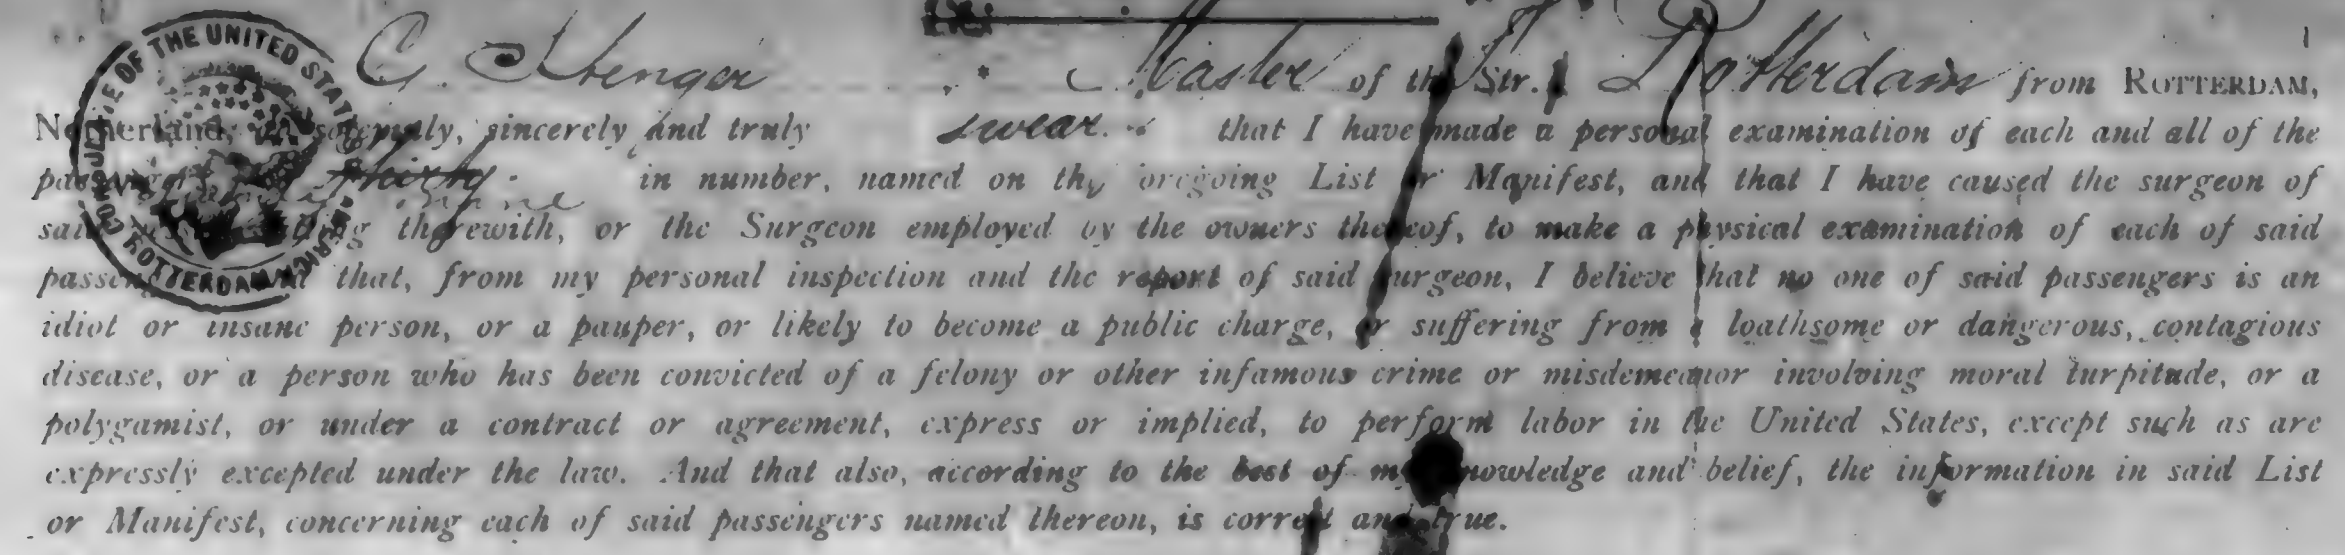 CONSULATE OF THE UNITED STATES OF AMERICA
ROTTERDAM
C. Stenger Master of the Str. Rotterdam from ROTTERDAM,
Netherlands, do solemnly, sincerely and truly swear. that I have made a personal examination of each and all of the
passengers thirty nine in number, named on the foregoing List or Manifest, and that I have caused the surgeon of
said sailing therewith, or the Surgeon employed by the owners thereof, to make a physical examination of each of said
passengers and that, from my personal inspection and the report of said surgeon, I believe that no one of said passengers is an
idiot or insane person, or a pauper, or likely to become a public charge, or suffering from a loathsome or dangerous, contagious
disease, or a person who has been convicted of a felony or other infamous crime or misdemeanor involving moral turpitude, or a
polygamist, or under a contract or agreement, express or implied, to perform labor in the United States, except such as are
expressly excepted under the law. And that also, according to the best of my knowledge and belief, the information in said List
or Manifest, concerning each of said passengers named thereon, is correct and true.